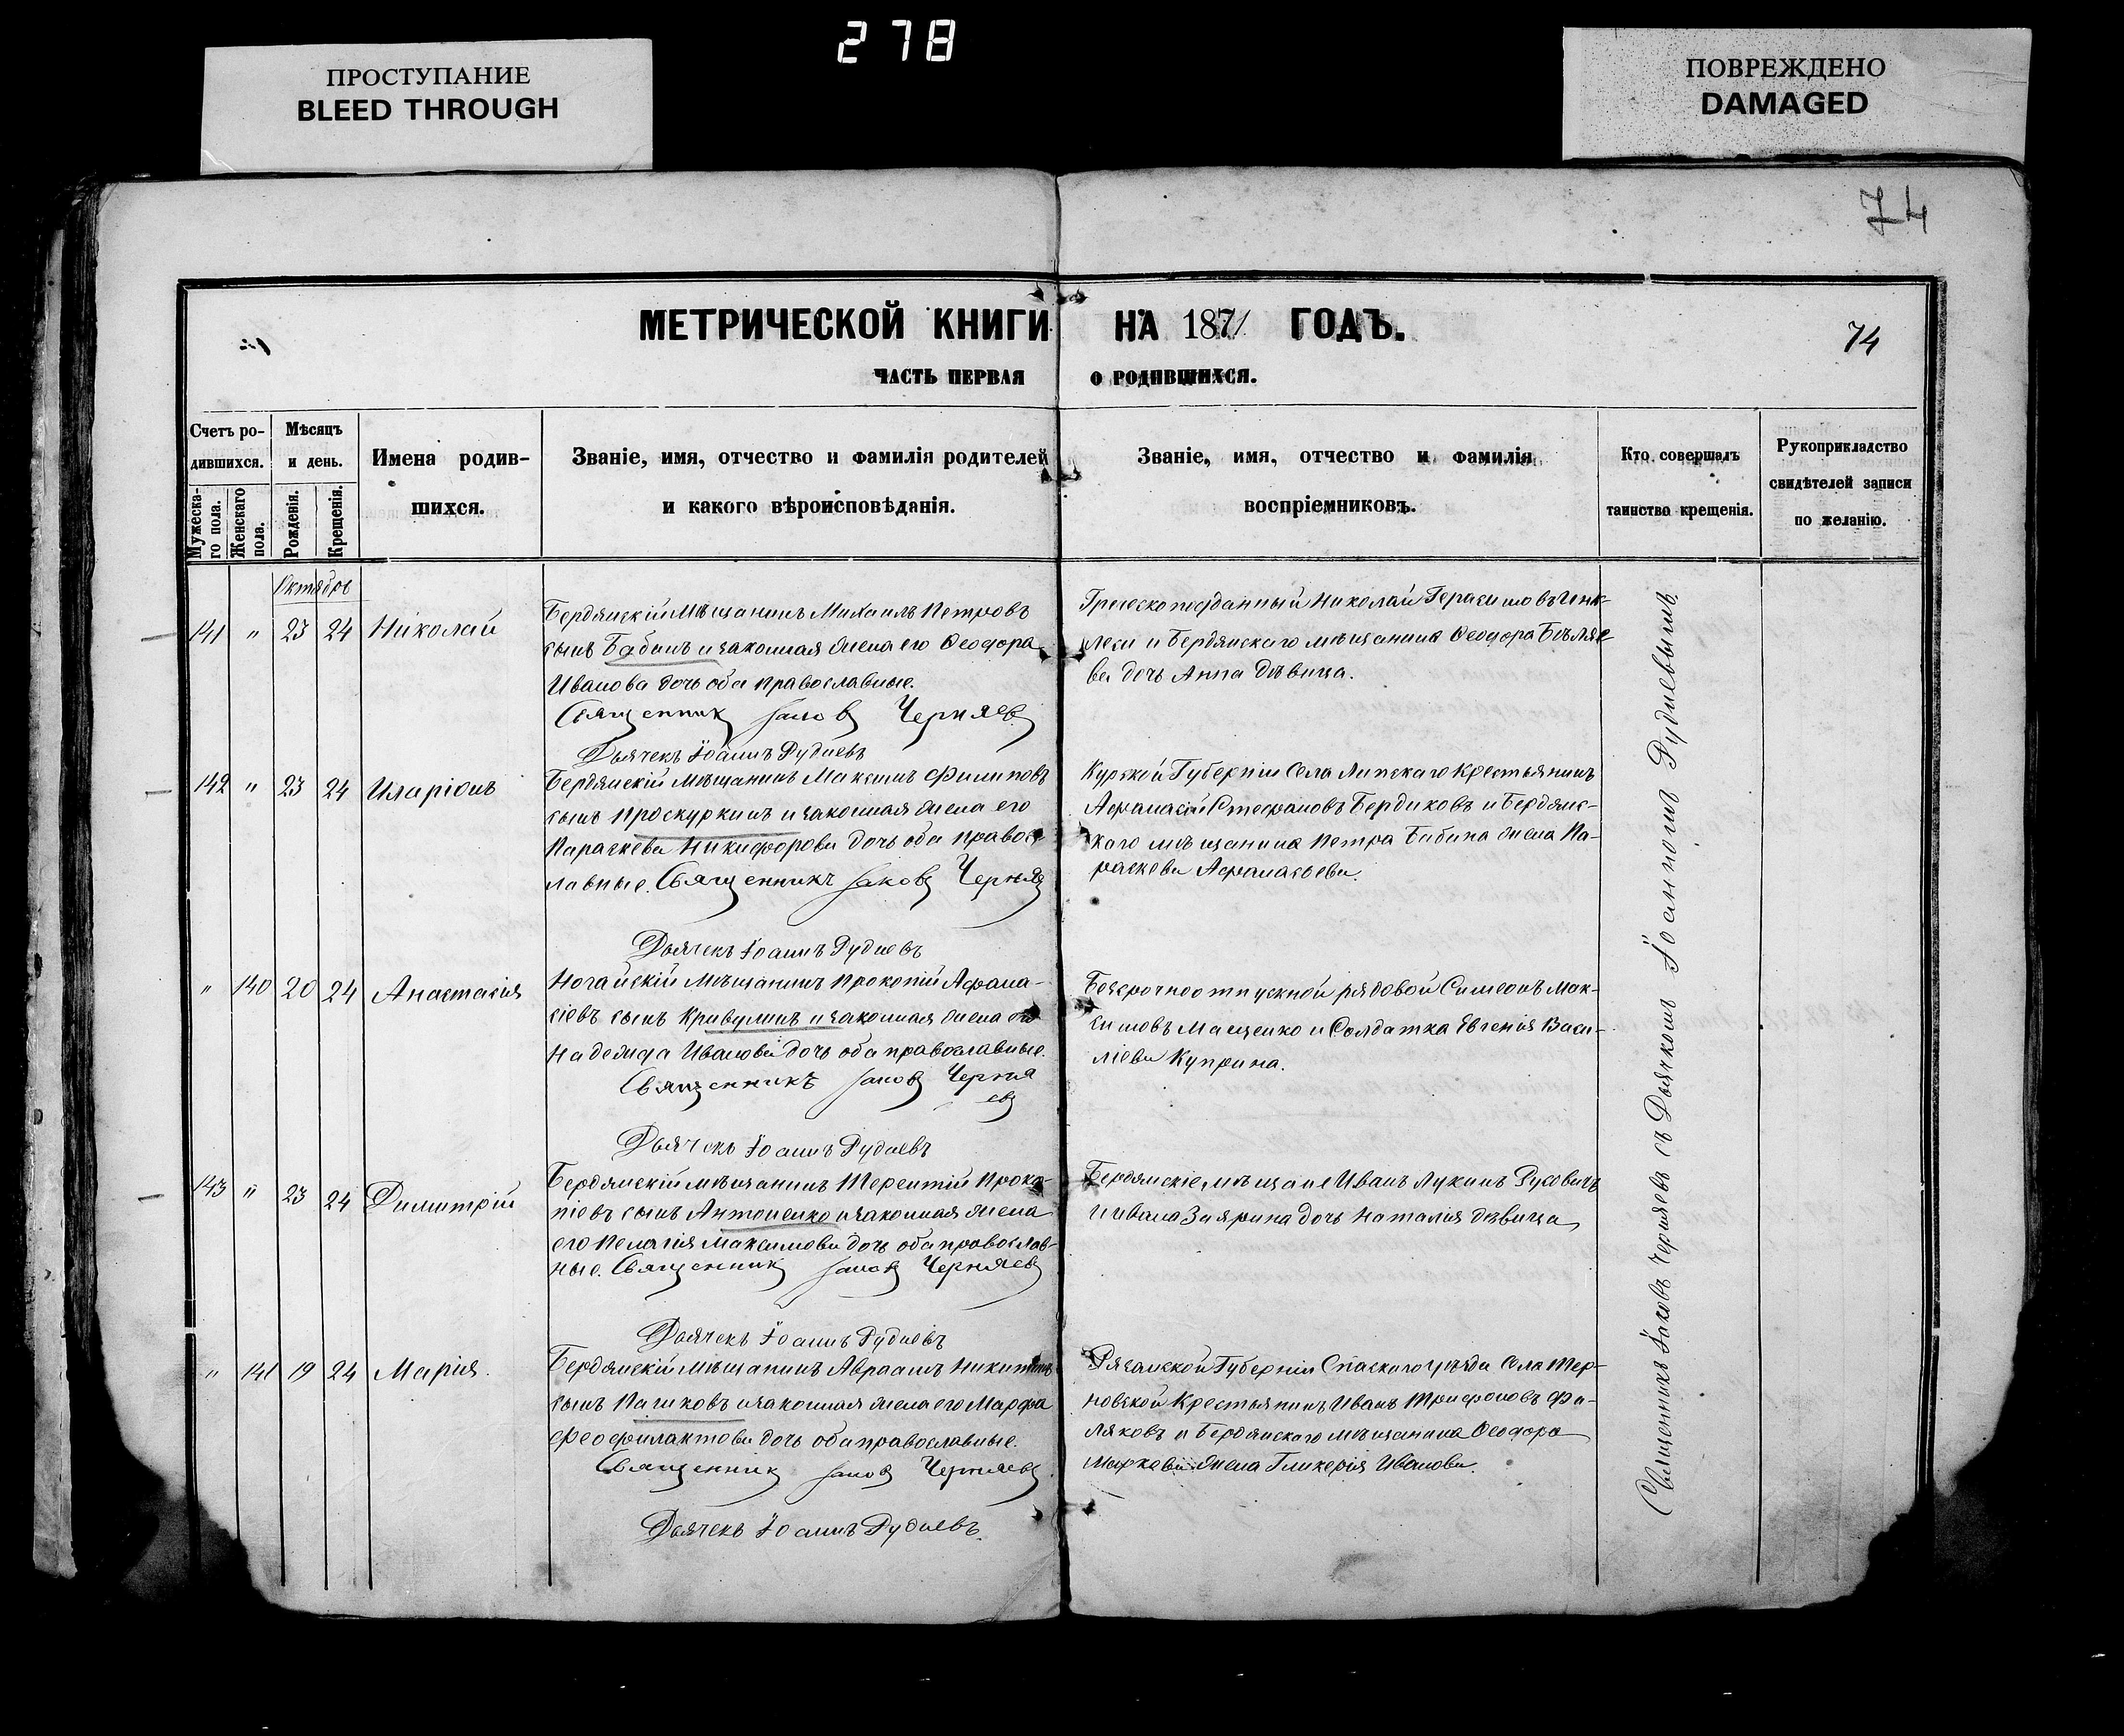 ПРОСТУПАНИЕ
BLEED THROUGH
278
ПОВРЕЖДЕНО
DAMAGED
74
МЕТРИЧЕСКОЙ КНИГИ НА 1871 ГОДЪ.
74
ЧАСТЬ ПЕРВАЯ О РОДИВШИХСЯ.
Счетъ ро-
дившихся.
Мужеска-
го пола.
Женскаго
пола.
Мѣсяцъ
и день.
Рожденія.
Крещенія.
Имена родив-
шихся.
Званіе, имя, отчество и фамилія родителей
и какого вѣроисповѣданія.
Званіе, имя, отчество и фамилія
воспріемниковъ.
Кто совершалъ
таинство крещенія.
Рукоприкладство
свидѣтелей записи
по желанію.
Октябрь
141 " 23 24 Николай
Бердянскій Мѣщанинъ Михаилъ Петровъ
сынъ Бабинъ и законная жена его Ѳеодора
Иванова дочь оба православные.
Священникъ Іаковъ Черняевъ
Дьячекъ Іоаннъ Рудневъ
Греческоподданный Николай Герасимовъ
и Бердянскаго мѣщанина Ѳеодора Бѣляе-
ва дочь Анна дѣвица.
142 " 23 24 Иларіонъ
Бердянскій мѣщанинъ Максимъ Филиповъ
сынъ Проскуркинъ и законная жена его
Параскева Никифорова дочь оба правос-
лавные. Священникъ Іаковъ Черняевъ
Дьячекъ Іоаннъ Рудневъ
Курской Губерніи Села Липскаго Крестьянинъ
Афанасій Стефановъ Бердиковъ и Бердянс-
каго мѣщанина Петра Бабина жена Па-
раскева Афанасьева.
" 140 20 24 Анастасія
Ногайскій Мѣщанинъ Прокопій Афана-
сіевъ сынъ Кривулинъ и законная жена его
Надежда Иванова дочь оба православные.
Священникъ Іаковъ Черня
евъ
Дьячекъ Іоаннъ Рудневъ
Безсрочноотпускной рядовой Симеонъ Мак-
симовъ Мащенко и Солдатка Евгенія Васи-
ліева Куприна.
143 " 23 24 Димитрій
Бердянскій мѣщанинъ Терентій Проко-
піевъ сынъ Антоненко и законная жена
его Пелагія Максимова дочь оба православ-
ные. Священникъ Іаковъ Черняевъ
Дьячекъ Іоаннъ Рудневъ
Бердянскіе мѣщане Иванъ Лукинъ Русовичъ
и Ивана Заярина дочь Наталія дѣвица
" 141 19 24 Марія.
Бердянскій мѣщанинъ Авраамъ Никитинъ
сынъ Пашковъ и законная жена его Марфа
Феофилактова дочь оба православные.
Священникъ Іаковъ Черняевъ
Дьячекъ Іоаннъ Рудневъ.
Рязанской Губерніи Спаскаго уѣзда Села Тер-
новской Крестьянинъ Иванъ Трифоновъ Фа-
ляковъ и Бердянскаго мѣщанина Ѳеодора
Маркова жена Гликерія Иванова.
Священникъ Іаковъ Черняевъ съ Дьячкомъ Іоанномъ Рудневымъ.